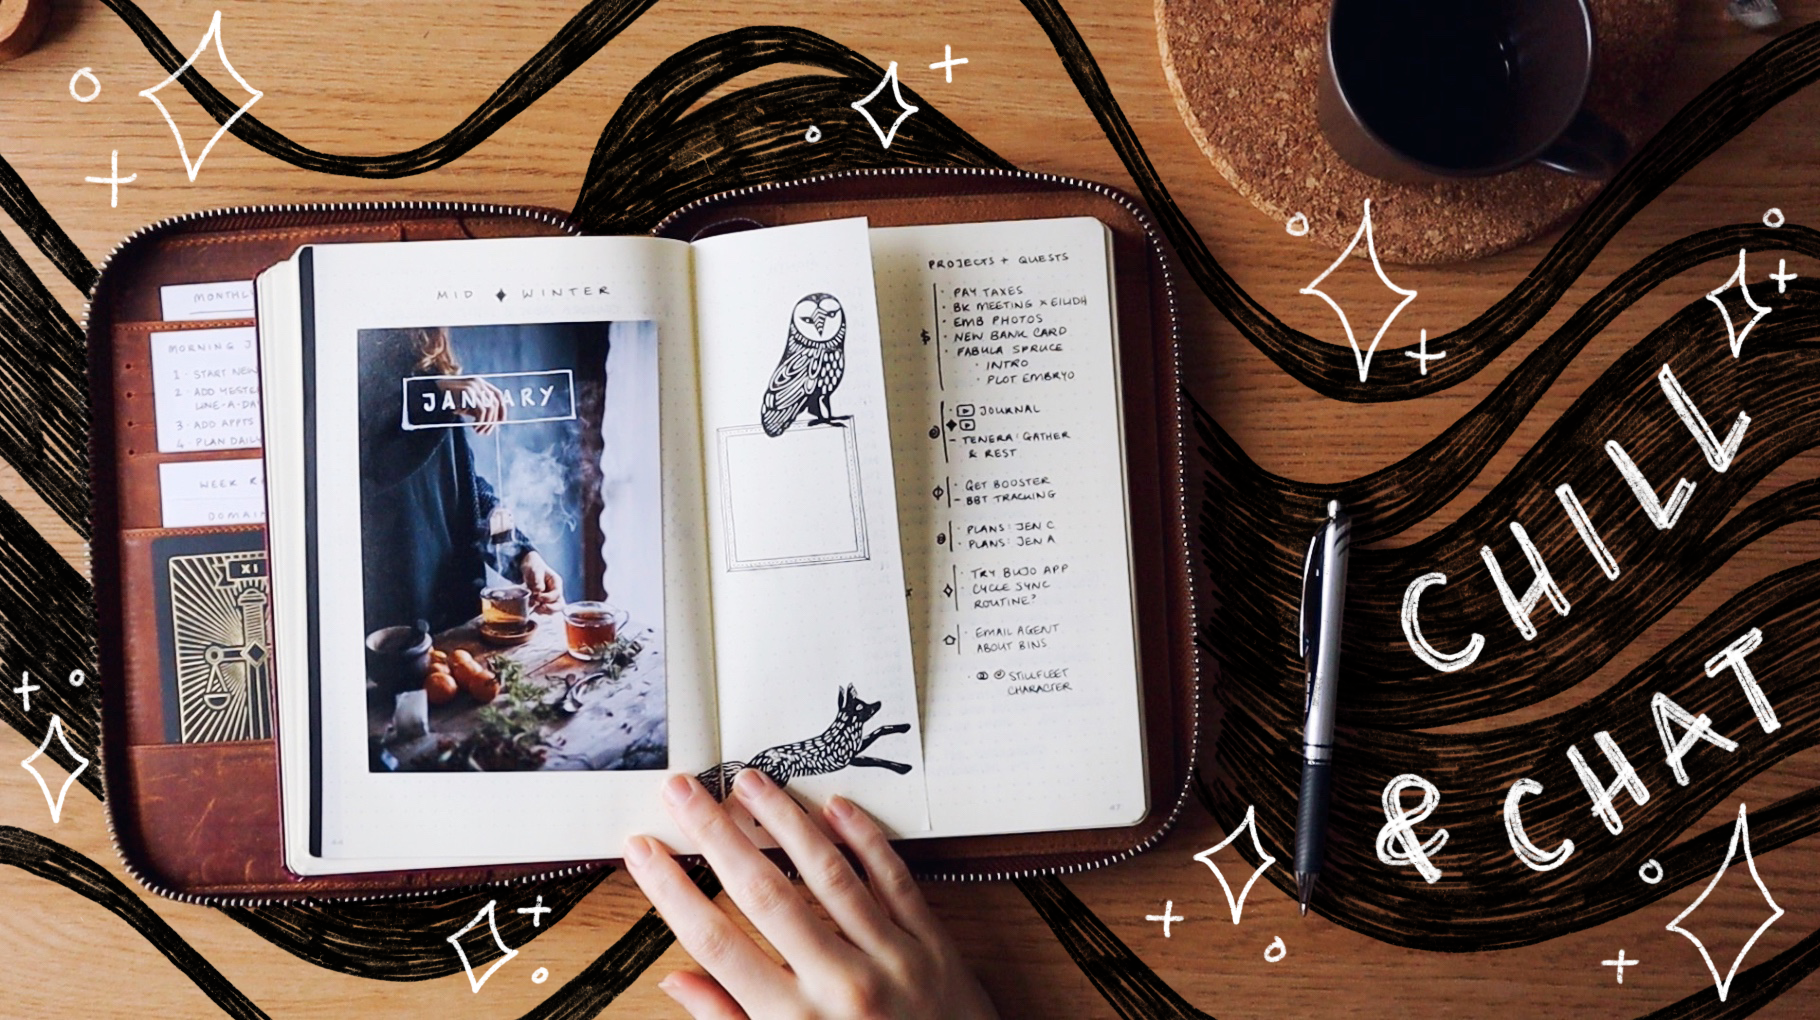 MONTHLY
MORNING J
1 · START NEW
2 · ADD YESTE
LINE-A-DA
3 · ADD APPTS
4 · PLAN DAILY
WEEK R
DOMAIN
XI
MID ♦ WINTER
JANUARY
PROJECTS + QUESTS
$
· PAY TAXES
· BK MEETING × EILIDH
· EMB PHOTOS
· NEW BANK CARD
· FABULA SPRUCE
· INTRO
· PLOT EMBRYO
· JOURNAL
– TENERA: GATHER
& REST
· GET BOOSTER
– BBT TRACKING
· PLANS: JEN C
· PLANS: JEN A
· TRY BUJO APP
· CYCLE SYNC
ROUTINE?
· EMAIL AGENT
ABOUT BINS
· STILLFLEET
CHARACTER
47
CHILL
& CHAT